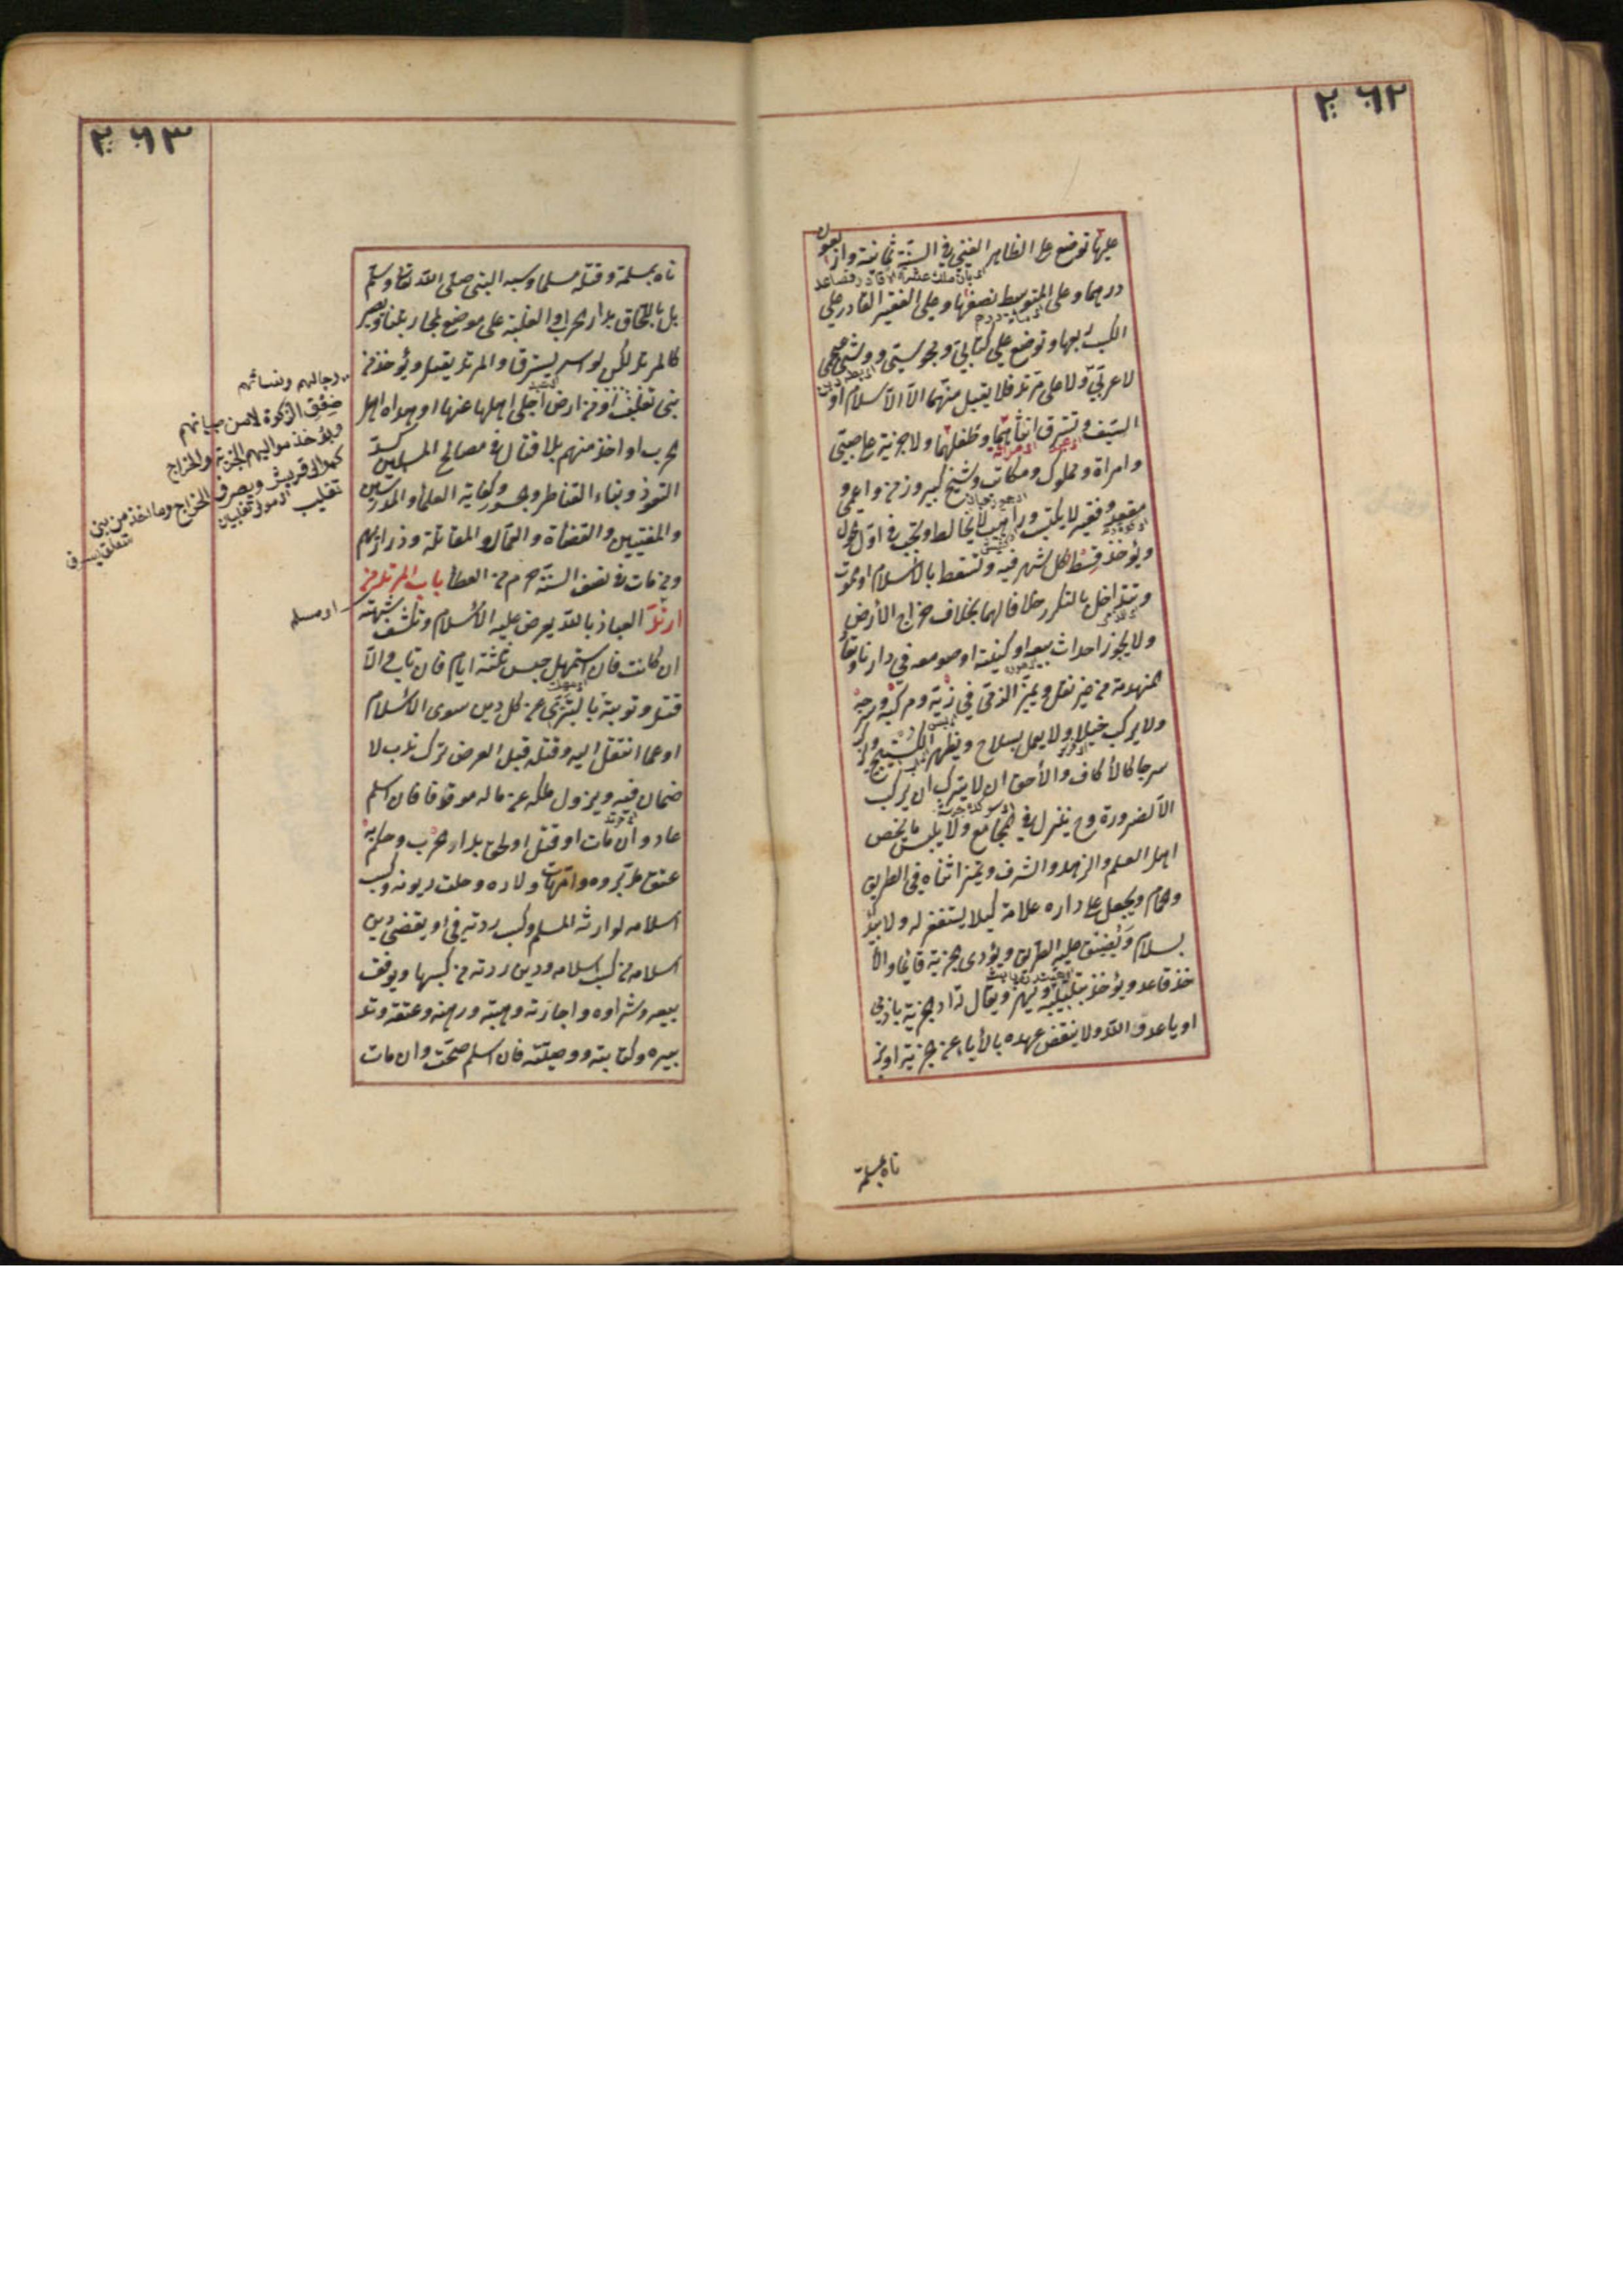 ٢٦٢
عليها توضع على الظاهر الغنى في السنة ثمانية واربعون
درهما وعلى المتوسط نصفها وعلى الفقير القادر على
الكسب ربعها وتوضع على كتابي ومجوسي ووثني عجمي
لا عربي ولا على مرتد فلا يقبل منهما الا الاسلام او
السيف وتسترق انثاهما وطفلهما ولا جزية على صبي
وامراة ومملوك ومكاتب وشيخ كبير وزمن واعمى و
مقعد وفقير لا يكتسب وراهب لا يخالط وتجب في اول الحول
ويؤخذ قسط كل شهر فيه وتسقط بالاسلام او الموت
وتتداخل بالتكرر خلافا لهما بخلاف خراج الأرض
ولا يجوز احداث بيعه او كنيسة او صومعه في دارنا وتعاد
المنهدمة من غير نقل ويميز الذمي في زيه ومركبه وسرجه
ولا يركب خيلا ولا يعمل بسلاح ويظهر الكستيج ويركب
سرجا كالأكاف والأحق ان لا يترك ان يركب
الا لضرورة وح ينزل في المجامع ولا يلبس ما يخص
اهل العلم والزهد والشرف وتميز انثاه في الطريق
والحمام ويجعل على داره علامة كيلا يستغفر له ولا يبدأ
بسلام ويضيق عليه الطريق ويؤدى الجزية قائما والأ
خذ قاعد ويؤخذ بتلبيبه ويهز ويقال له اد الجزية يا ذمي
او يا عدو الله ولا ينتقض عهده بالأباء عن الجزية او بز
ناه بمسلمة
٢٦٣
ناه بمسلمة وقتله مسلما وسبه النبي صلى الله تعالى وسلم
بل بالالحاق بدار الحرب او الغلبة على موضع لمحاربتنا ويصير
كالمرتد لكن لو اسر يسترق والمرتد يقتل ويؤخذ من
بنى تغلب او من ارض اجلى اهلها عنها او اهداه اهل
الحرب او اخذ منهم بلا قتال في مصالح المسلمين كسد
الثغور وبناء القناطر والجسور وكفاية العلماء والمدرسين
والمفتيين والقضاة والعمال والمقاتلة وذراريهم
ومن مات في نصف السنة حرم من العطا باب المرتد من
ارتد العياذ بالله يعرض عليه الأسلام وتكشف شبهته
ان كانت فان استمهل حبس ثلثة ايام فان تاب والا
قتل وتوبته بالتبري عن كل دين سوى الاسلام
او عما انتقل اليه وقتله قبل العرض ترك ندب لا
ضمان فيه ويزول ملكه عن ماله موقوفا فان اسلم
عاد وان مات او قتل او لحق بدار الحرب وحكم به
عتق مدبروه وامهات اولاده وحلت ديونه وكسب
اسلامه لوارثه المسلم وكسب ردته في او يقضى دين
اسلامه من كسب اسلامه ودين ردته من كسبها ويوقف
بيعه وشراوه واجارته وهبته ورهنه وعتقه وتد
بيره وكتابته ووصيته فان اسلم صحت وان مات
رجالهم ونسائهم
ضعف الزكوة لا من صبيانهم
ويؤخذ مواليهم الجزية والخراج
كموالى قريش ويصرف الخراج وما اخذ من بنى
تغلب
او مسلم